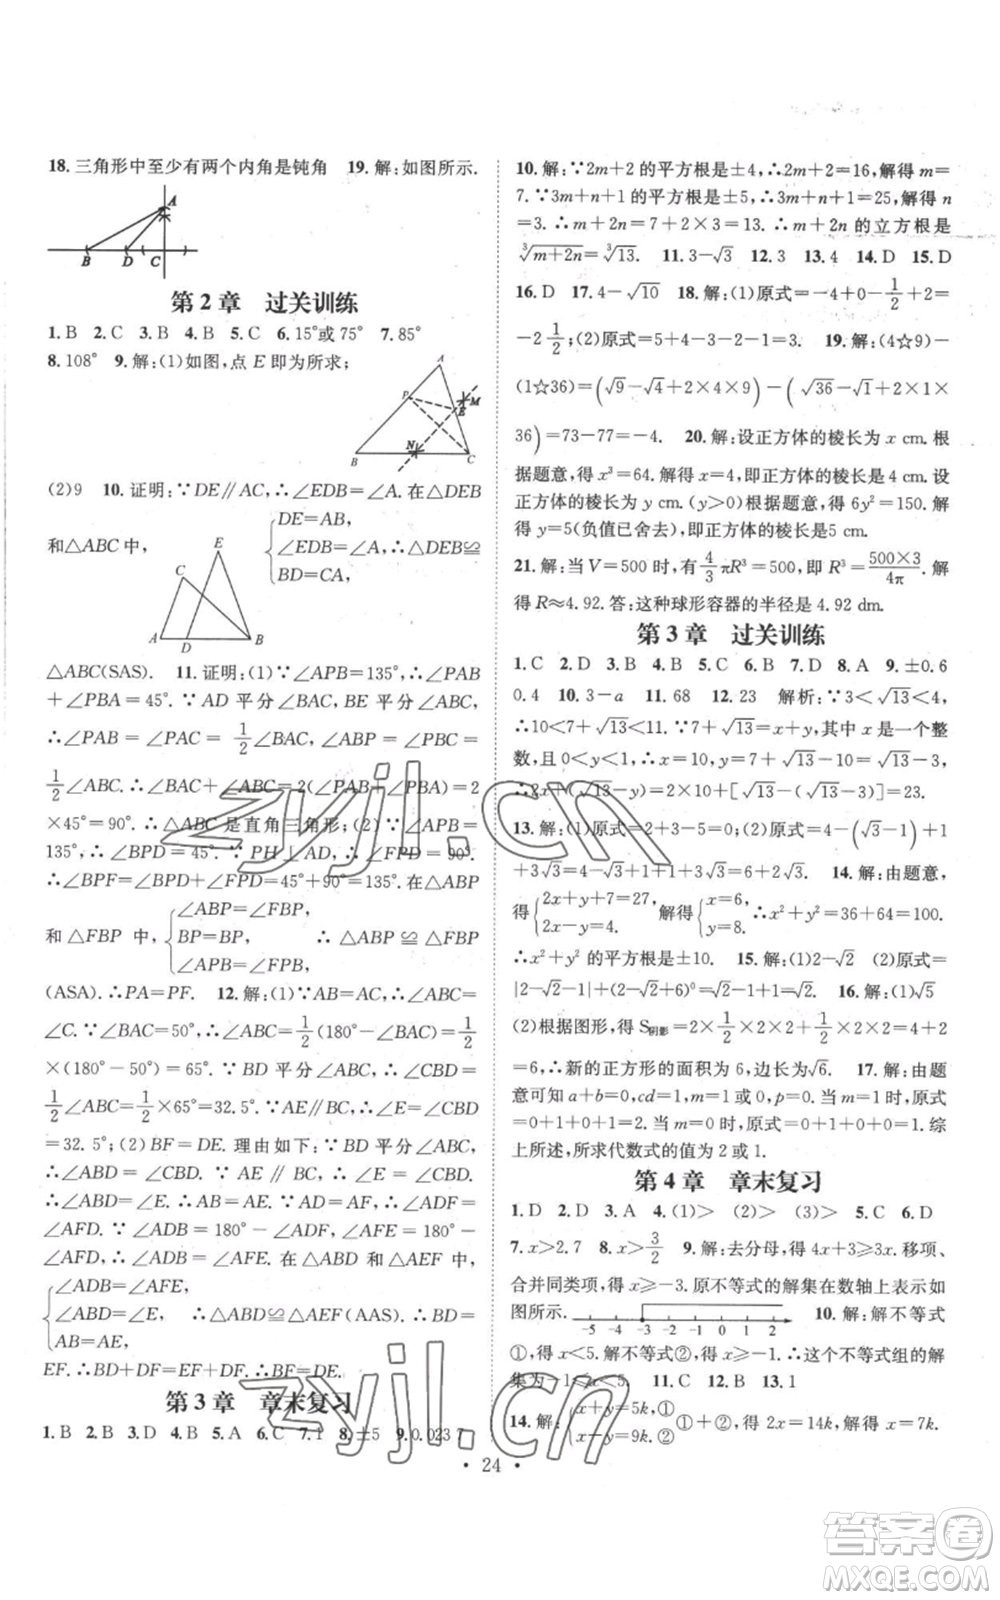 18.三角形中至少有两个内角是钝角 19.解:如图所示.
A
B D C
第2章 过关训练
1.B 2.C 3.B 4.B 5.C 6.15°或75° 7.85°
8.108° 9.解:(1)如图,点E即为所求;
A
P
E
M
N
B
C
(2)9 10.证明:∵DE∥AC,∴∠EDB=∠A.在△DEB
和△ABC中,{DE=AB, ∠EDB=∠A, BD=CA,∴△DEB≌
E
C
A D B
△ABC(SAS). 11.证明:(1)∵∠APB=135°,∴∠PAB
+∠PBA=45°.∵AD平分∠BAC,BP平分∠ABC,
∴∠PAB=∠PAC=1/2∠BAC,∠ABP=∠PBC=
1/2∠ABC,∴∠BAC+∠ABC=2(∠PAB+∠PBA)=2
×45°=90°.∴△ABC是直角三角形;(2)∵∠APB=
135°,∴∠BPD=45°.∵PH⊥AD,∴∠FPD=90°.
∴∠BPF=∠BPD+∠FPD=45°+90°=135°.在△ABP
和△FBP中,{∠ABP=∠FBP, BP=BP, ∠APB=∠FPB, ∴△ABP≌△FBP
(ASA).∴PA=PF. 12.解:(1)∵AB=AC,∴∠ABC=
∠C.∵∠BAC=50°,∴∠ABC=1/2(180°-∠BAC)=1/2
×(180°-50°)=65°.∵BD平分∠ABC,∴∠CBD=
1/2∠ABC=1/2×65°=32.5°.∵AE∥BC,∴∠E=∠CBD
=32.5°;(2)BF=DE.理由如下:∵BD平分∠ABC,
∴∠ABD=∠CBD.∵AE∥BC,∴∠AEF=∠CBD.
∴∠ABD=∠E.∴AB=AE.∵AD=AF,∴∠ADF=
∠AFD.∵∠ADB=180°-∠ADF,∠AFE=180°-
∠AFD,∴∠ADB=∠AFE.在△ABD和△AEF中,
{∠ADB=∠AFE, ∠ABD=∠E, AB=AE, ∴△ABD≌△AEF(AAS).∴BD=
EF.∴BD+DF=EF+DF.∴BF=DE.
第3章 章末复习
1.B 2.B 3.D 4.B 5.A 6.C 7.1 8.±5 9.0.0237
10.解:∵2m+2的平方根是±4,∴2m+2=16,解得m=
7.∵3m+n+1的平方根是±5,∴3m+n+1=25,解得n
=3.∴m+2n=7+2×3=13.∴m+2n的立方根是
∛(m+2n)=∛13. 11.3-√3 12.3 13.4 14.D 15.D
16.D 17.4-√10 18.解:(1)原式=-4+0-1/2+2=
-2 1/2;(2)原式=√3-2-1-√3=-3. 19.解:(4☆9)-
(1☆36)=(√9-√4+2×4×9)-(√36-√1+2×1×
36)=73-77=-4. 20.解:设正方体的棱长为x cm.根
据题意,得x³=64.解得x=4,即正方体的棱长为4 cm.设
正方体的棱长为y cm.(y>0)根据题意,得6y²=150.解
得y=5(负值已舍去),即正方体的棱长为5 cm.
21.解:当V=500时,有4/3πR³=500,即R³=(500×3)/(4π).解
得R≈4.92.答:这种球形容器的半径是4.92 dm.
第3章 过关训练
1.C 2.D 3.B 4.C 5.C 6.B 7.D 8.A 9.±0.6
0.4 10.3-a 11.68 12.23 解析:∵3<√13<4,
∴10<7+√13<11.∵7+√13=x+y,其中x是一个整
数,且0<y<1,∴x=10,y=7+√13-10=√13-3.
∴2x+(√13-y)=2×10+[√13-(√13-3)]=23.
13.解:(1)原式=2+3-5=0;(2)原式=4-(√3-1)+1
+3√3=4-√3+1+1+3√3=6+2√3. 14.解:由题意,
得{2x+y+7=27, 2x-y=4. 解得{x=6, y=8. ∴x²+y²=36+64=100.
∴x²+y²的平方根是±10. 15.解:(1)2-√2 (2)原式=
|2-√2-1|+(2-√2+√2-6)⁰=√2-1+1=√2. 16.解:(1)√5
(2)根据图形,得S阴影=2×1/2×2×2+1/2×2×2=4+2
=6,∴新的正方形的面积为6,边长为√6. 17.解:由题
意可知a+b=0,cd=1,m=1或0,p=0.当m=1时,原式
=0+1+0+1=2;当m=0时,原式=0+1+0-0=1.综
上所述,所求代数式的值为2或1.
第4章 章末复习
1.D 2.D 3.A 4.(1)> (2)> (3)> 5.C 6.D
7.x>2.7 8.x>3/2 9.解:去分母,得4x+3≥3x.移项、
合并同类项,得x≥-3.原不等式的解集在数轴上表示如
图所示. -5 -4 -3 -2 -1 0 1 2 10.解:解不等式
①,得x<5.解不等式②,得x≥-1.∴这个不等式组的解
集为-1≤x<5. 11.C 12.B 13.1
14.解:{x+y=5k,① x-y=9k.② ①+②,得2x=14k,解得x=7k.
· 24 ·
zyjl.cn
zyjl.cn
答案圈
MXQE.COM